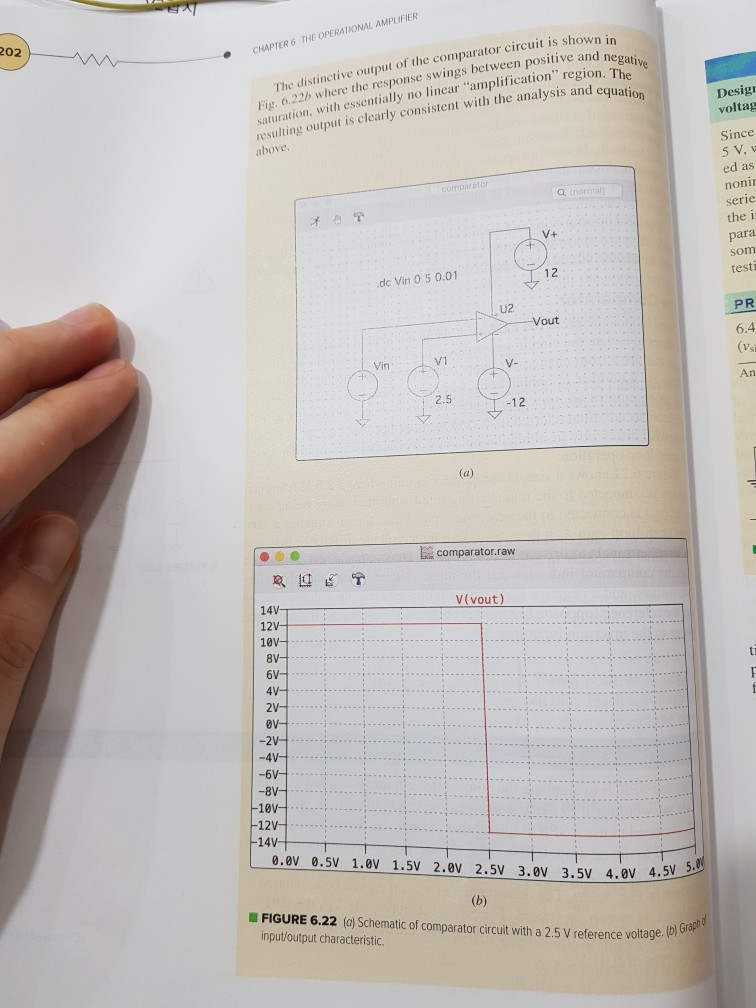 202
CHAPTER 6 THE OPERATIONAL AMPLIFIER
The distinctive output of the comparator circuit is shown in
Fig. 6.22b where the response swings between positive and negative
saturation, with essentially no linear "amplification" region. The
resulting output is clearly consistent with the analysis and equation
above.
comparator
(normal)
V+
12
.dc Vin 0 5 0.01
U2
Vout
Vin
V1
2.5
V-
-12
(a)
comparator.raw
V(vout)
14V
12V
10V
8V
6V
4V
2V
0V
-2V
-4V
-6V
-8V
-10V
-12V
-14V
0.0V 0.5V 1.0V 1.5V 2.0V 2.5V 3.0V 3.5V 4.0V 4.5V 5.0V
(b)
FIGURE 6.22 (a) Schematic of comparator circuit with a 2.5 V reference voltage. (b) Graph of
input/output characteristic.
Since
5 V,
ed as
the
som
PR
6.4